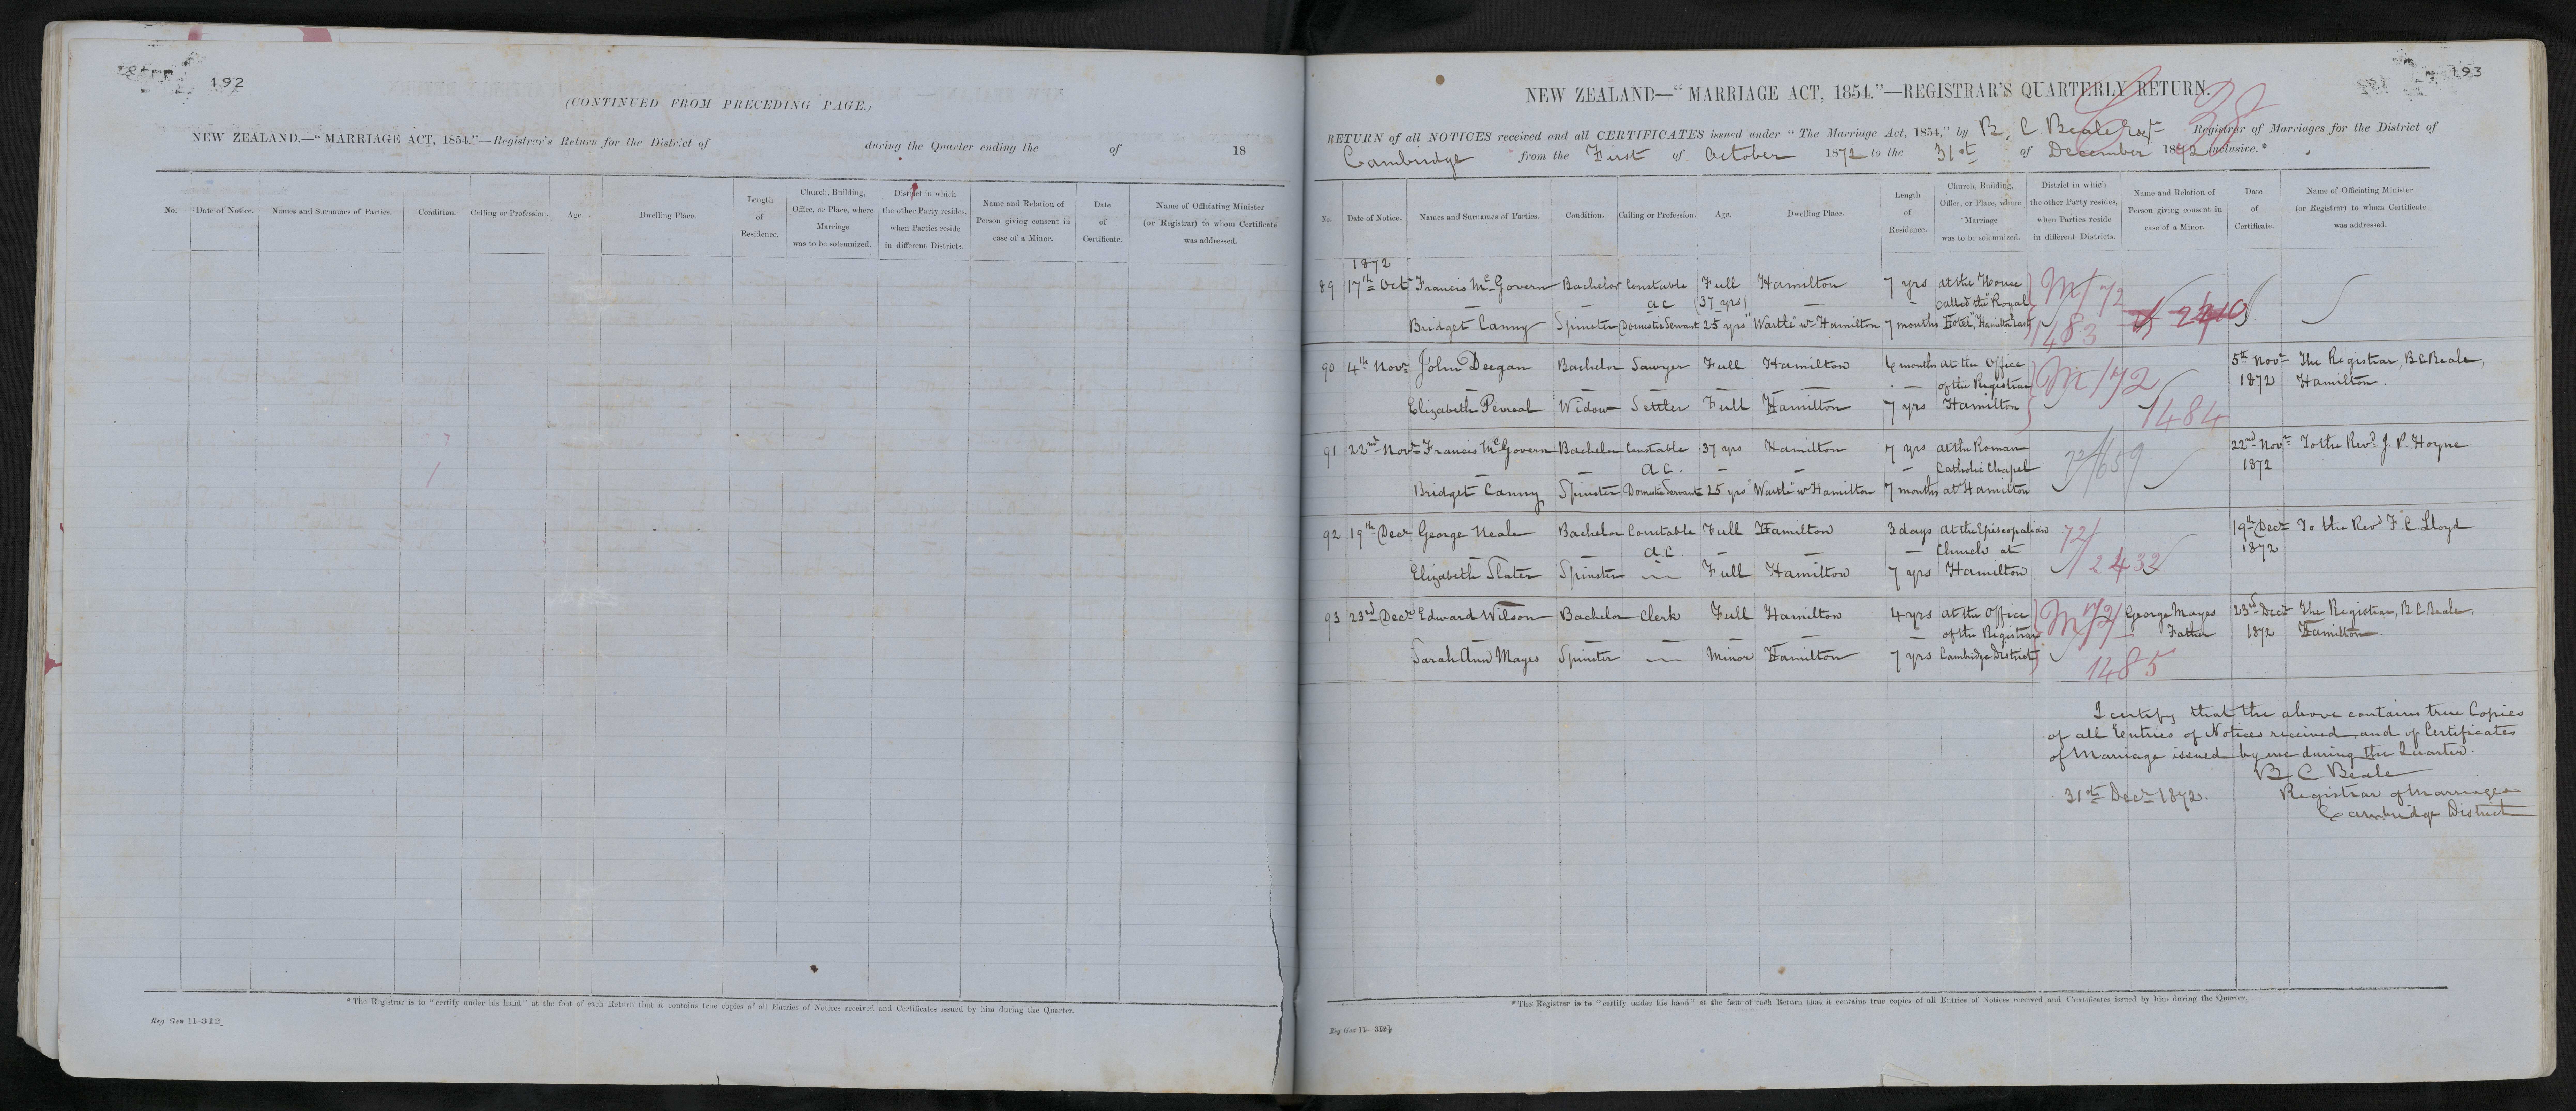 192
(CONTINUED FROM PRECEDING PAGE.)
NEW ZEALAND.—"MARRIAGE ACT, 1854."—Registrar's Return for the District of during the Quarter ending the of 18
No. Date of Notice. Names and Surnames of Parties. Condition. Calling or Profession. Age. Dwelling Place. Length of Residence. Church, Building, Office, or Place, where Marriage was to be solemnized. District in which the other Party resides, when Parties reside in different Districts. Name and Relation of Person giving consent in case of a Minor. Date of Certificate. Name of Officiating Minister (or Registrar) to whom Certificate was addressed.
*The Registrar is to "certify under his hand" at the foot of each Return that it contains true copies of all Entries of Notices received and Certificates issued by him during the Quarter.
Reg Gen 11—312
193
NEW ZEALAND—"MARRIAGE ACT, 1854."—REGISTRAR'S QUARTERLY RETURN.
RETURN of all NOTICES received and all CERTIFICATES issued under "The Marriage Act, 1854," by B. C. Beale Esqr Registrar of Marriages for the District of
Cambridge from the First of October 1872 to the 31st of December 1872 inclusive.*
No. Date of Notice. Names and Surnames of Parties. Condition. Calling or Profession. Age. Dwelling Place. Length of Residence. Church, Building, Office, or Place, where Marriage was to be solemnized. District in which the other Party resides, when Parties reside in different Districts. Name and Relation of Person giving consent in case of a Minor. Date of Certificate. Name of Officiating Minister (or Registrar) to whom Certificate was addressed.
1872
89 17th Oct Francis McGovern Bachelor Constable Full Hamilton 7 yrs at the House M/72
— — a c (37 yrs) — — called the "Royal
Bridget Canny Spinster Domestic Servant 25 yrs "Wartle" nr Hamilton 7 months Hotel", Hamilton East 1483
90 4th Novr John Deegan Bachelor Sawyer Full Hamilton 6 months at the Office M/72 5th Novr The Registrar, B C Beale,
— — — — — — of the Registrar 1872 Hamilton.
Elizabeth Widow Settler Full Hamilton 7 yrs Hamilton 1484
91 22nd Novr Francis McGovern Bachelor Constable 37 yrs Hamilton 7 yrs at the Roman 72/659 22nd Novr To the Revd J. P. Hoyne
— — a c. — — — Catholic Chapel 1872
Bridget Canny Spinster Domestic Servant 25 yrs "Wartle" nr Hamilton 7 months at Hamilton
92 19th Decr George Neale Bachelor Constable Full Hamilton 3 days at the Episcopalian 72/ 19th Decr To the Revd F. C Lloyd
— — a c. — — — Church at 1872
Elizabeth Slater Spinster — Full Hamilton 7 yrs Hamilton 2432
93 23rd Decr Edward Wilson Bachelor Clerk Full Hamilton 4 yrs at the Office M 72/ George Mayes 23rd Decr The Registrar, B C Beale,
— — — — — — of the Registrar Father 1872 Hamilton.
Sarah Ann Mayes Spinster — Minor Hamilton 7 yrs Cambridge District 1485
I certify that the above contains true Copies
of all Entries of Notices received, and of Certificates
of Marriage issued by me during the Quarter.
B C Beale
31st Decr 1872. Registrar of Marriages
Cambridge District
*The Registrar is to "certify under his hand" at the foot of each Return that it contains true copies of all Entries of Notices received and Certificates issued by him during the Quarter.
Reg Gen 11—312